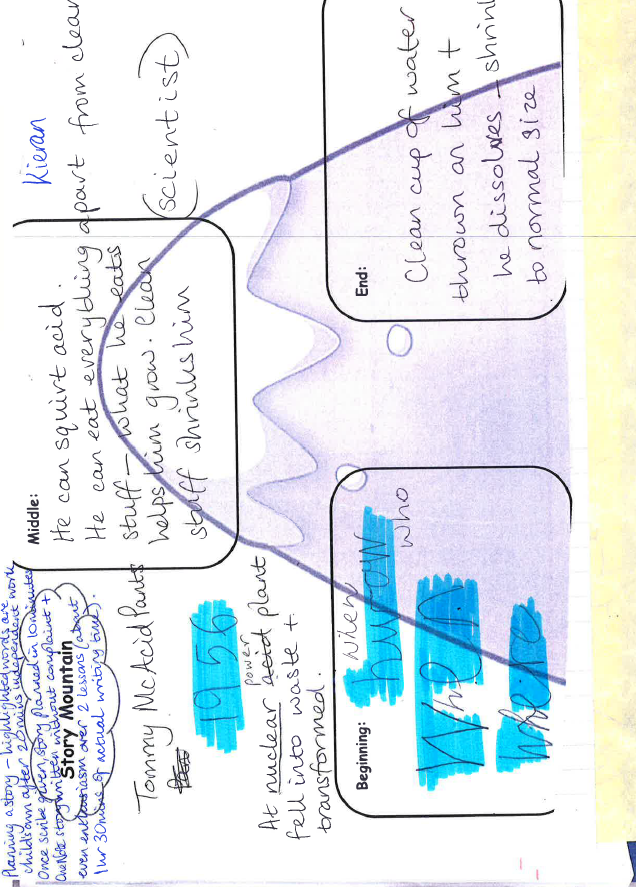 Planning a story – highlighted words are
child's own after 20 mins independent work
Once scribe given story planned in 10 minutes
OneNote story written without complaint +
even enthusiasm over 2 lessons (about
1 hr 30 mins of actual writing time).
Story Mountain
Kieran
Tommy McAcidPants
1956
At nuclear power acid plant
fell into waste +
transformed.
Beginning:
when
hwow
who
When
Where
Middle:
He can squirt acid.
He can eat everything apart from clean
stuff – what he eats
helps him grow. Clean
stuff shrinks him
(scientist)
End:
Clean cup of water
thrown on him +
he dissolves – shrink
to normal size